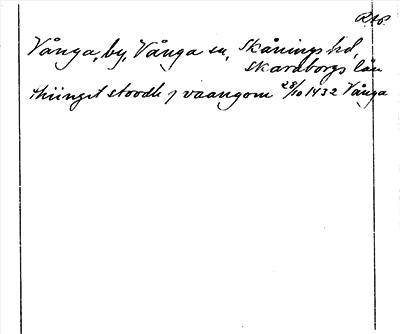 Vånga, by, Vånga sn, Skånings hd,
Skaraborgs län
thiinget stoodh j vaangom 28/10 1432 Vånga